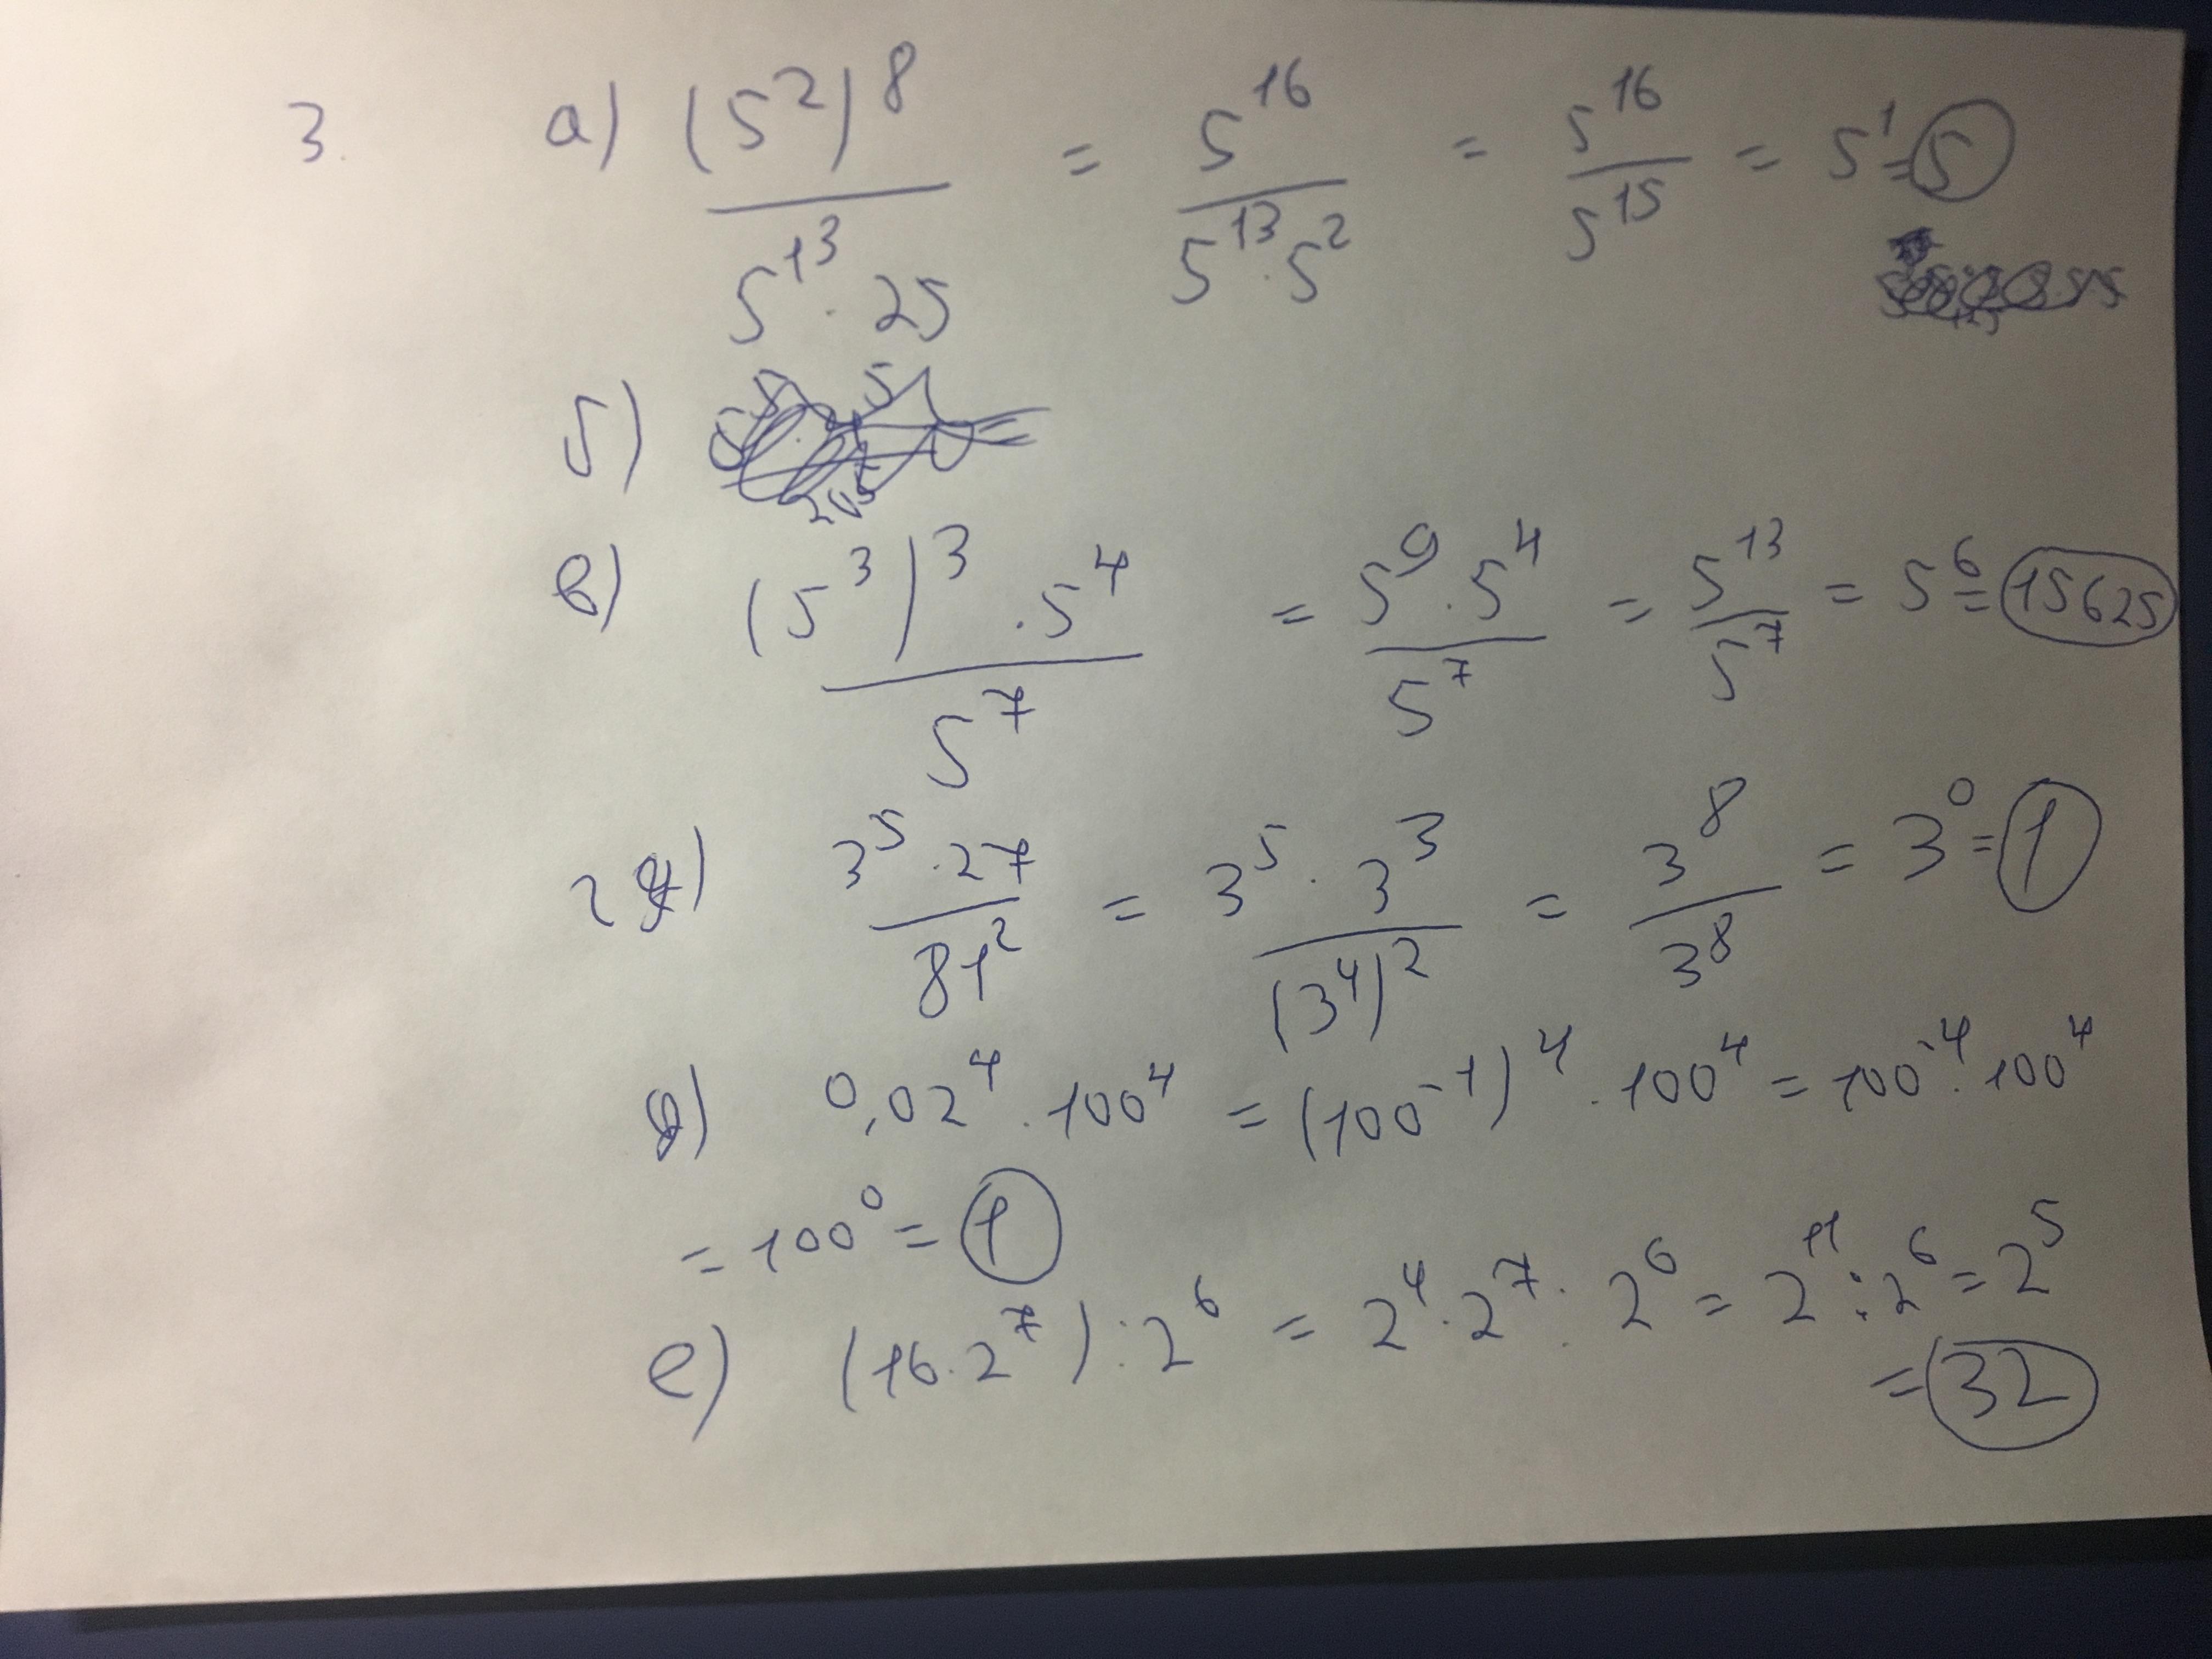 3. а) (5²)⁸ / 5¹³ · 25 = 5¹⁶ / 5¹³ · 5² = 5¹⁶ / 5¹⁵ = 5¹ = 5
б)
в) (5³)³ · 5⁴ / 5⁷ = 5⁹ · 5⁴ / 5⁷ = 5¹³ / 5⁷ = 5⁶ = 15625
г) 3⁵ · 27 / 81² = 3⁵ · 3³ / (3⁴)² = 3⁸ / 3⁸ = 3⁰ = 1
д) 0,02⁴ · 100⁴ = (100⁻¹)⁴ · 100⁴ = 100⁻⁴ · 100⁴
= 100⁰ = 1
е) (16 · 2⁷) : 2⁶ = 2⁴ · 2⁷ : 2⁶ = 2¹¹ : 2⁶ = 2⁵
= 32